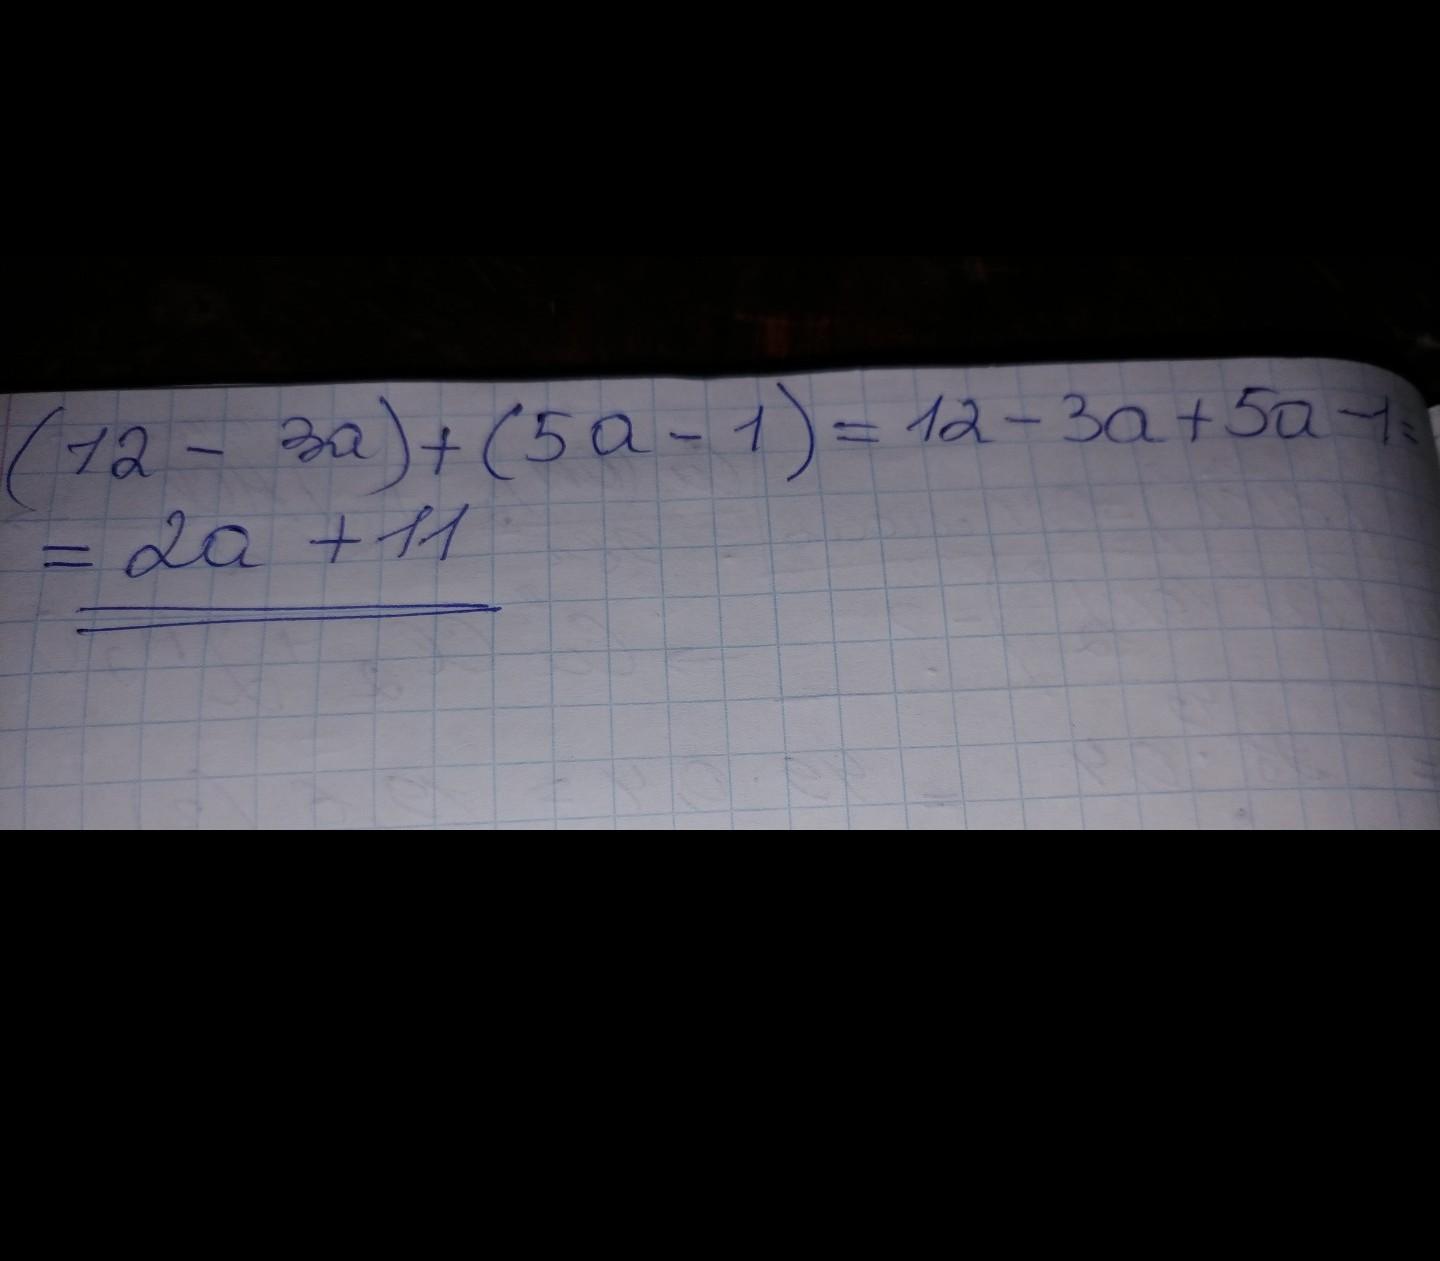 (12 - 3a) + (5a - 1) = 12 - 3a + 5a - 1 =
= 2a + 11